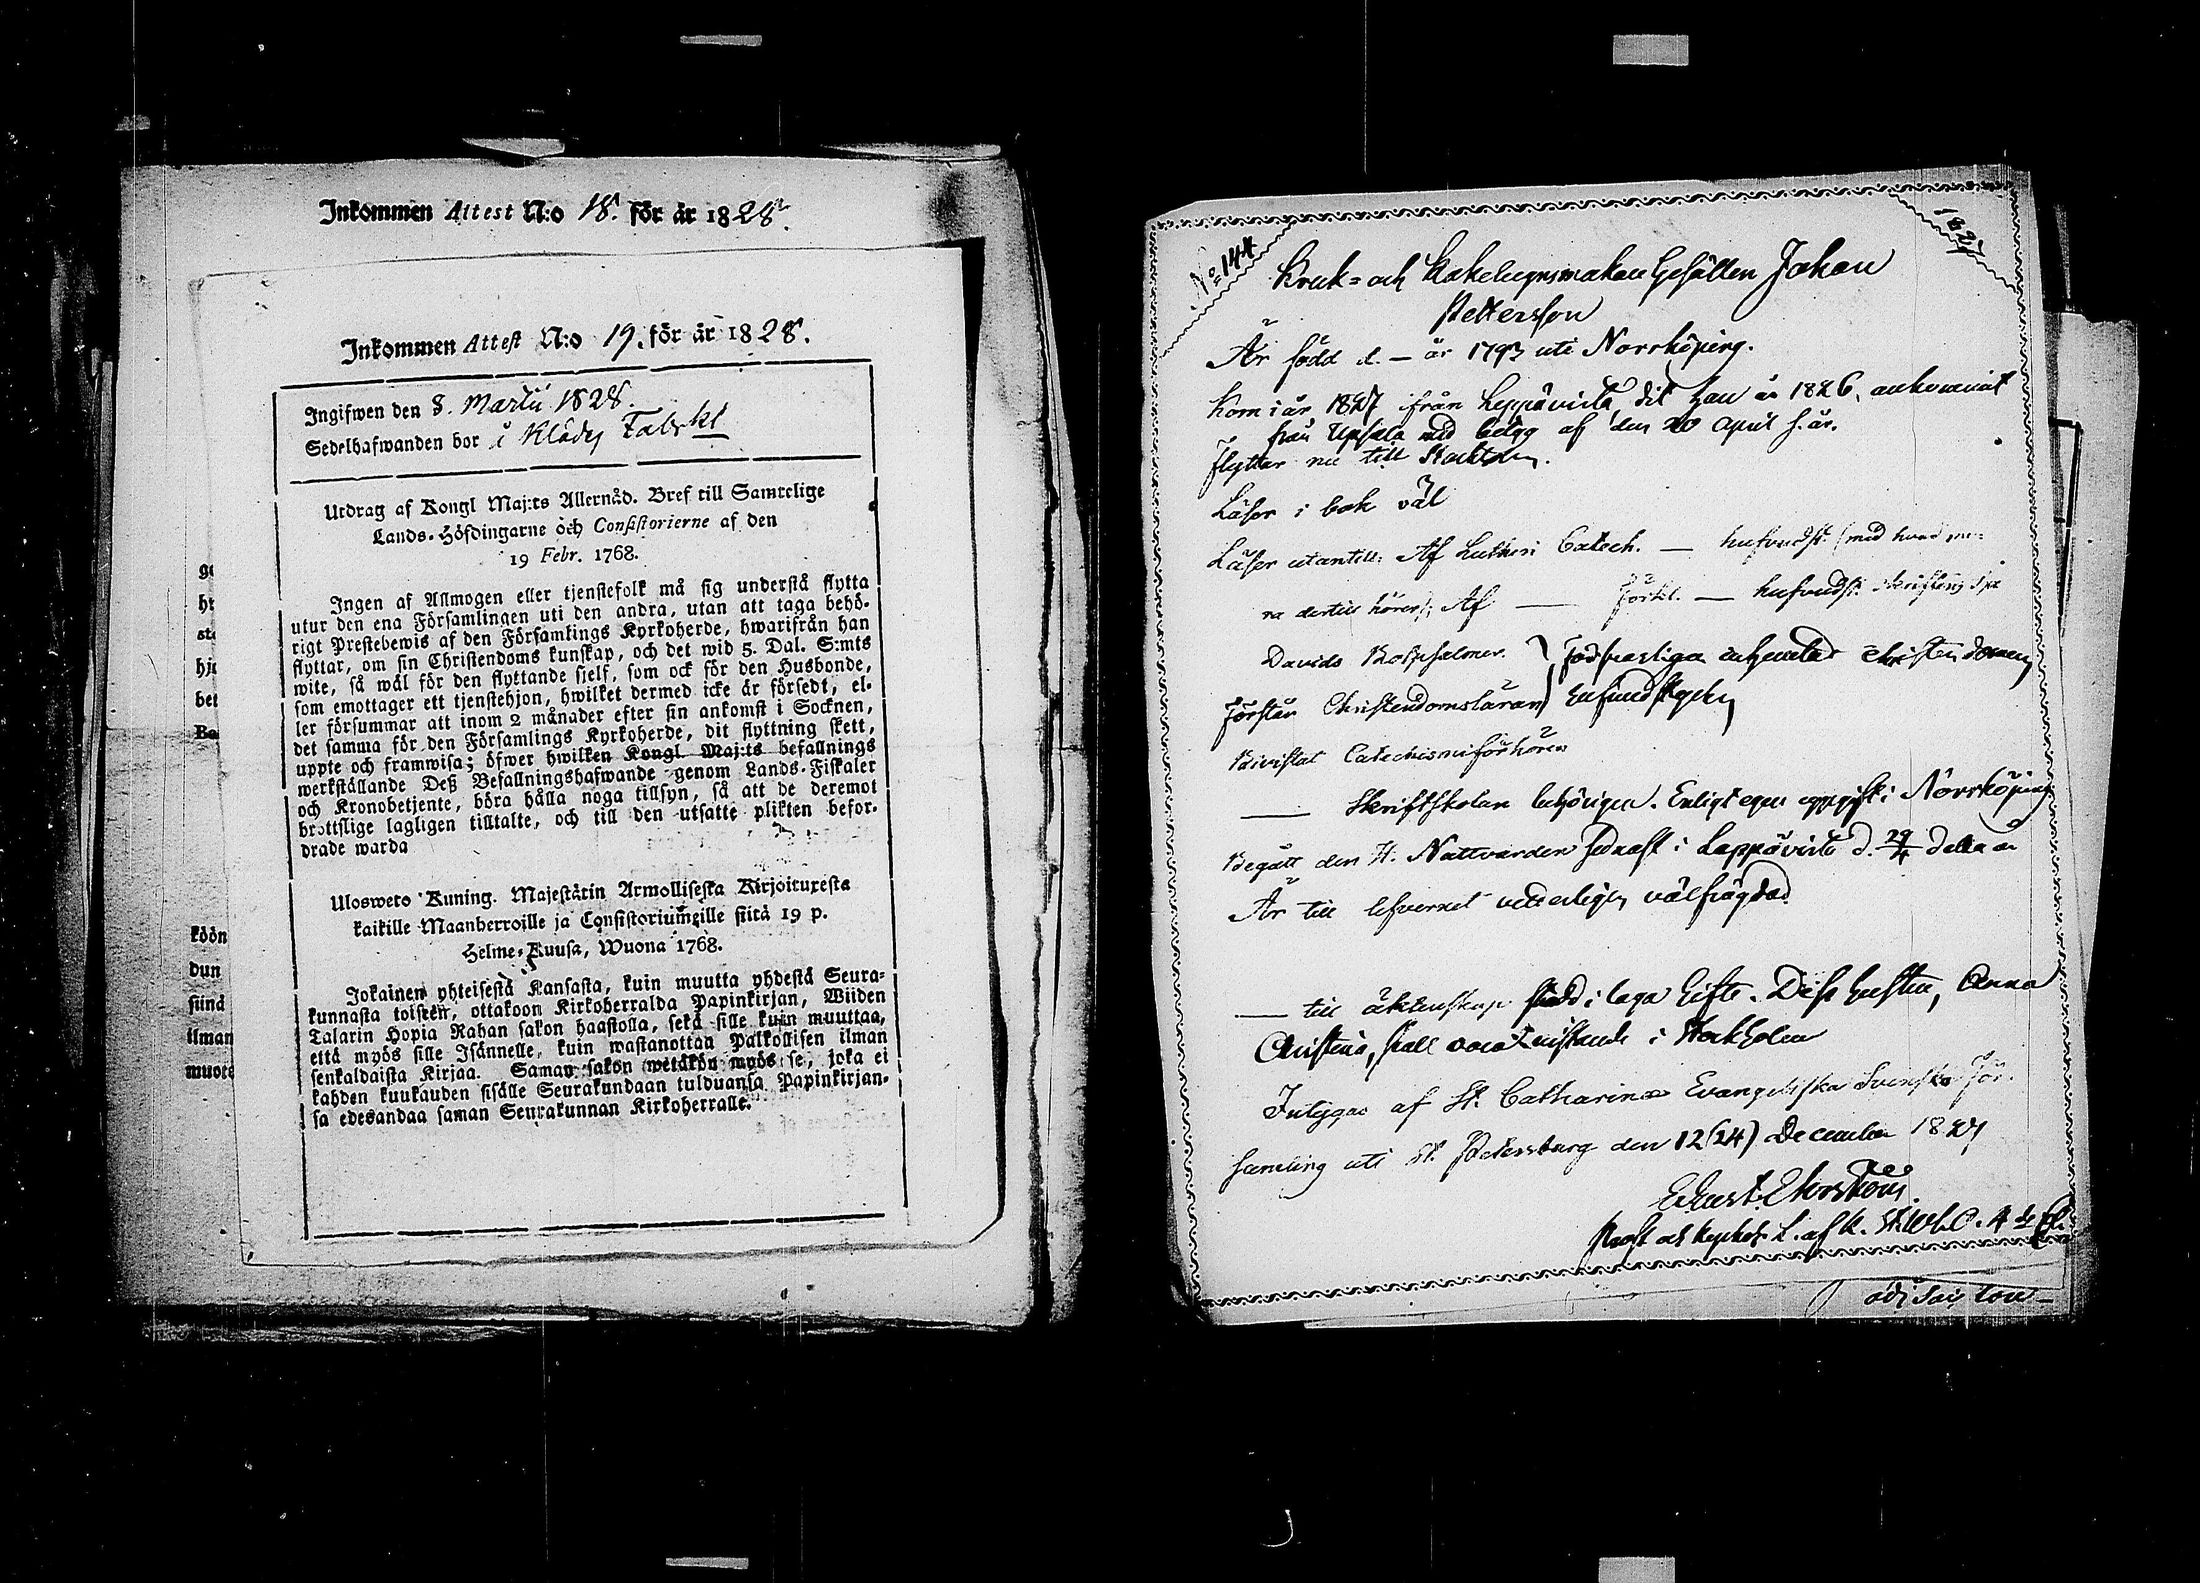 Inkommen Attest N:o 18. för år 1828.
Inkommen Attest N:o 19. för år 1828.
Ingifwen den 8. Martii 1828.
Sedelhafwanden bor i Klädes Fabrkt
Utdrag af Kongl Maj:ts Allernåd. Bref till Samtelige
Lands-Höfdingarne och Consistorierne af den
19 Febr. 1768.
Ingen af Allmogen eller tjenstefolk må sig understå flytta
utur den ena Församlingen uti den andra, utan att taga behö-
rigt Prestebewis af den Församlings Kyrkoherde, hwarifrån han
flyttar, om sin Christendoms kunskap, och det wid 5. Dal. S:mts
wite, så wäl för den flyttande sielf, som ock för den Husbonde,
som emottager ett tjenstehjon, hwilket dermed icke är försedt, el-
ler försummar att inom 2 månader efter sin ankomst i Socknen,
det samma för den Församlings Kyrkoherde, dit flyttning skett,
uppte och framwisa; öfwer hwilken Kongl Maj:ts befallnings
werkställande Deß Befallningshafwande genom Lands-Fiskaler
och Kronobetjente, böra hålla noga tillsyn, så att de deremot
brottslige lagligen tilltalte, och till den utsatte plikten befor-
drade warda
Ulosweto Kuning. Majestätin Armollisesta Kirjoituxesta
kaikille Maanherroille ja Consistoriumeille siitä 19 p.
Helme-Kuusa, Wuona 1768.
Jokainen yhteisestä Kansasta, kuin muutta yhdestä Seura-
kunnasta toiseen, ottakoon Kirkoherralda Papinkirjan, Wiiden
Talarin Hopia Rahan sakon haastolla, sekä sille kuin muuttaa,
että myös sille Isännelle, kuin wastanottaa Palkollisen ilman
senkaldaista Kirjaa. Saman sakon wetäkön myös se, joka ei
kahden kuukauden sisälle Seurakundaan tulduansa Papinkirjan-
sa edesandaa saman Seurakunnan Kirkoherralle.
ge
hr
sto
hje
bet
Ba
köön
dun
siinä
ilman
muote
No 144
1827
Kruk- och Kakelugnsmakare Gesällen Johan
Pettersson
Är född d. — år 1793 uti Norrköping.
Kom i år 1827 ifrån Leppävirta, dit han år 1826 ankommit
från Upsala med betyg af den 20 April s. år.
Flyttar nu till Stockholm.
Läser i bok väl
Läser utantill: Af Lutheri Catech. — hufvudst. (med hvad me-
ra dertill hörer); Af — Förkl. — hufvudst. Skriftens Sp
Davids Botpsalmer. } Försvarligen inhemtat Christendomens
Förstår Christendomsläran } hufvudstycken
Bivistat Catechismiförhören
— Skriftskolan behörigen. Enligt egen uppgift i Norrköping
Begått den H. Nattvarden sednast i Leppävirta d. 29/4 detta år
Är till lefvernet vitterligen välfrägdad
— till äktenskap stadd i laga Gifte. Dess hustru, Anna
Christina, skall vara i Stockholm
Intygas af St. Catharinæ Evangeliska Svenska För-
samling uti St. Petersburg den 12 (24) December 1827
Ehrström
Prost och Kyrkoh. L. af K. St. Wl. O. 4 de Cl.